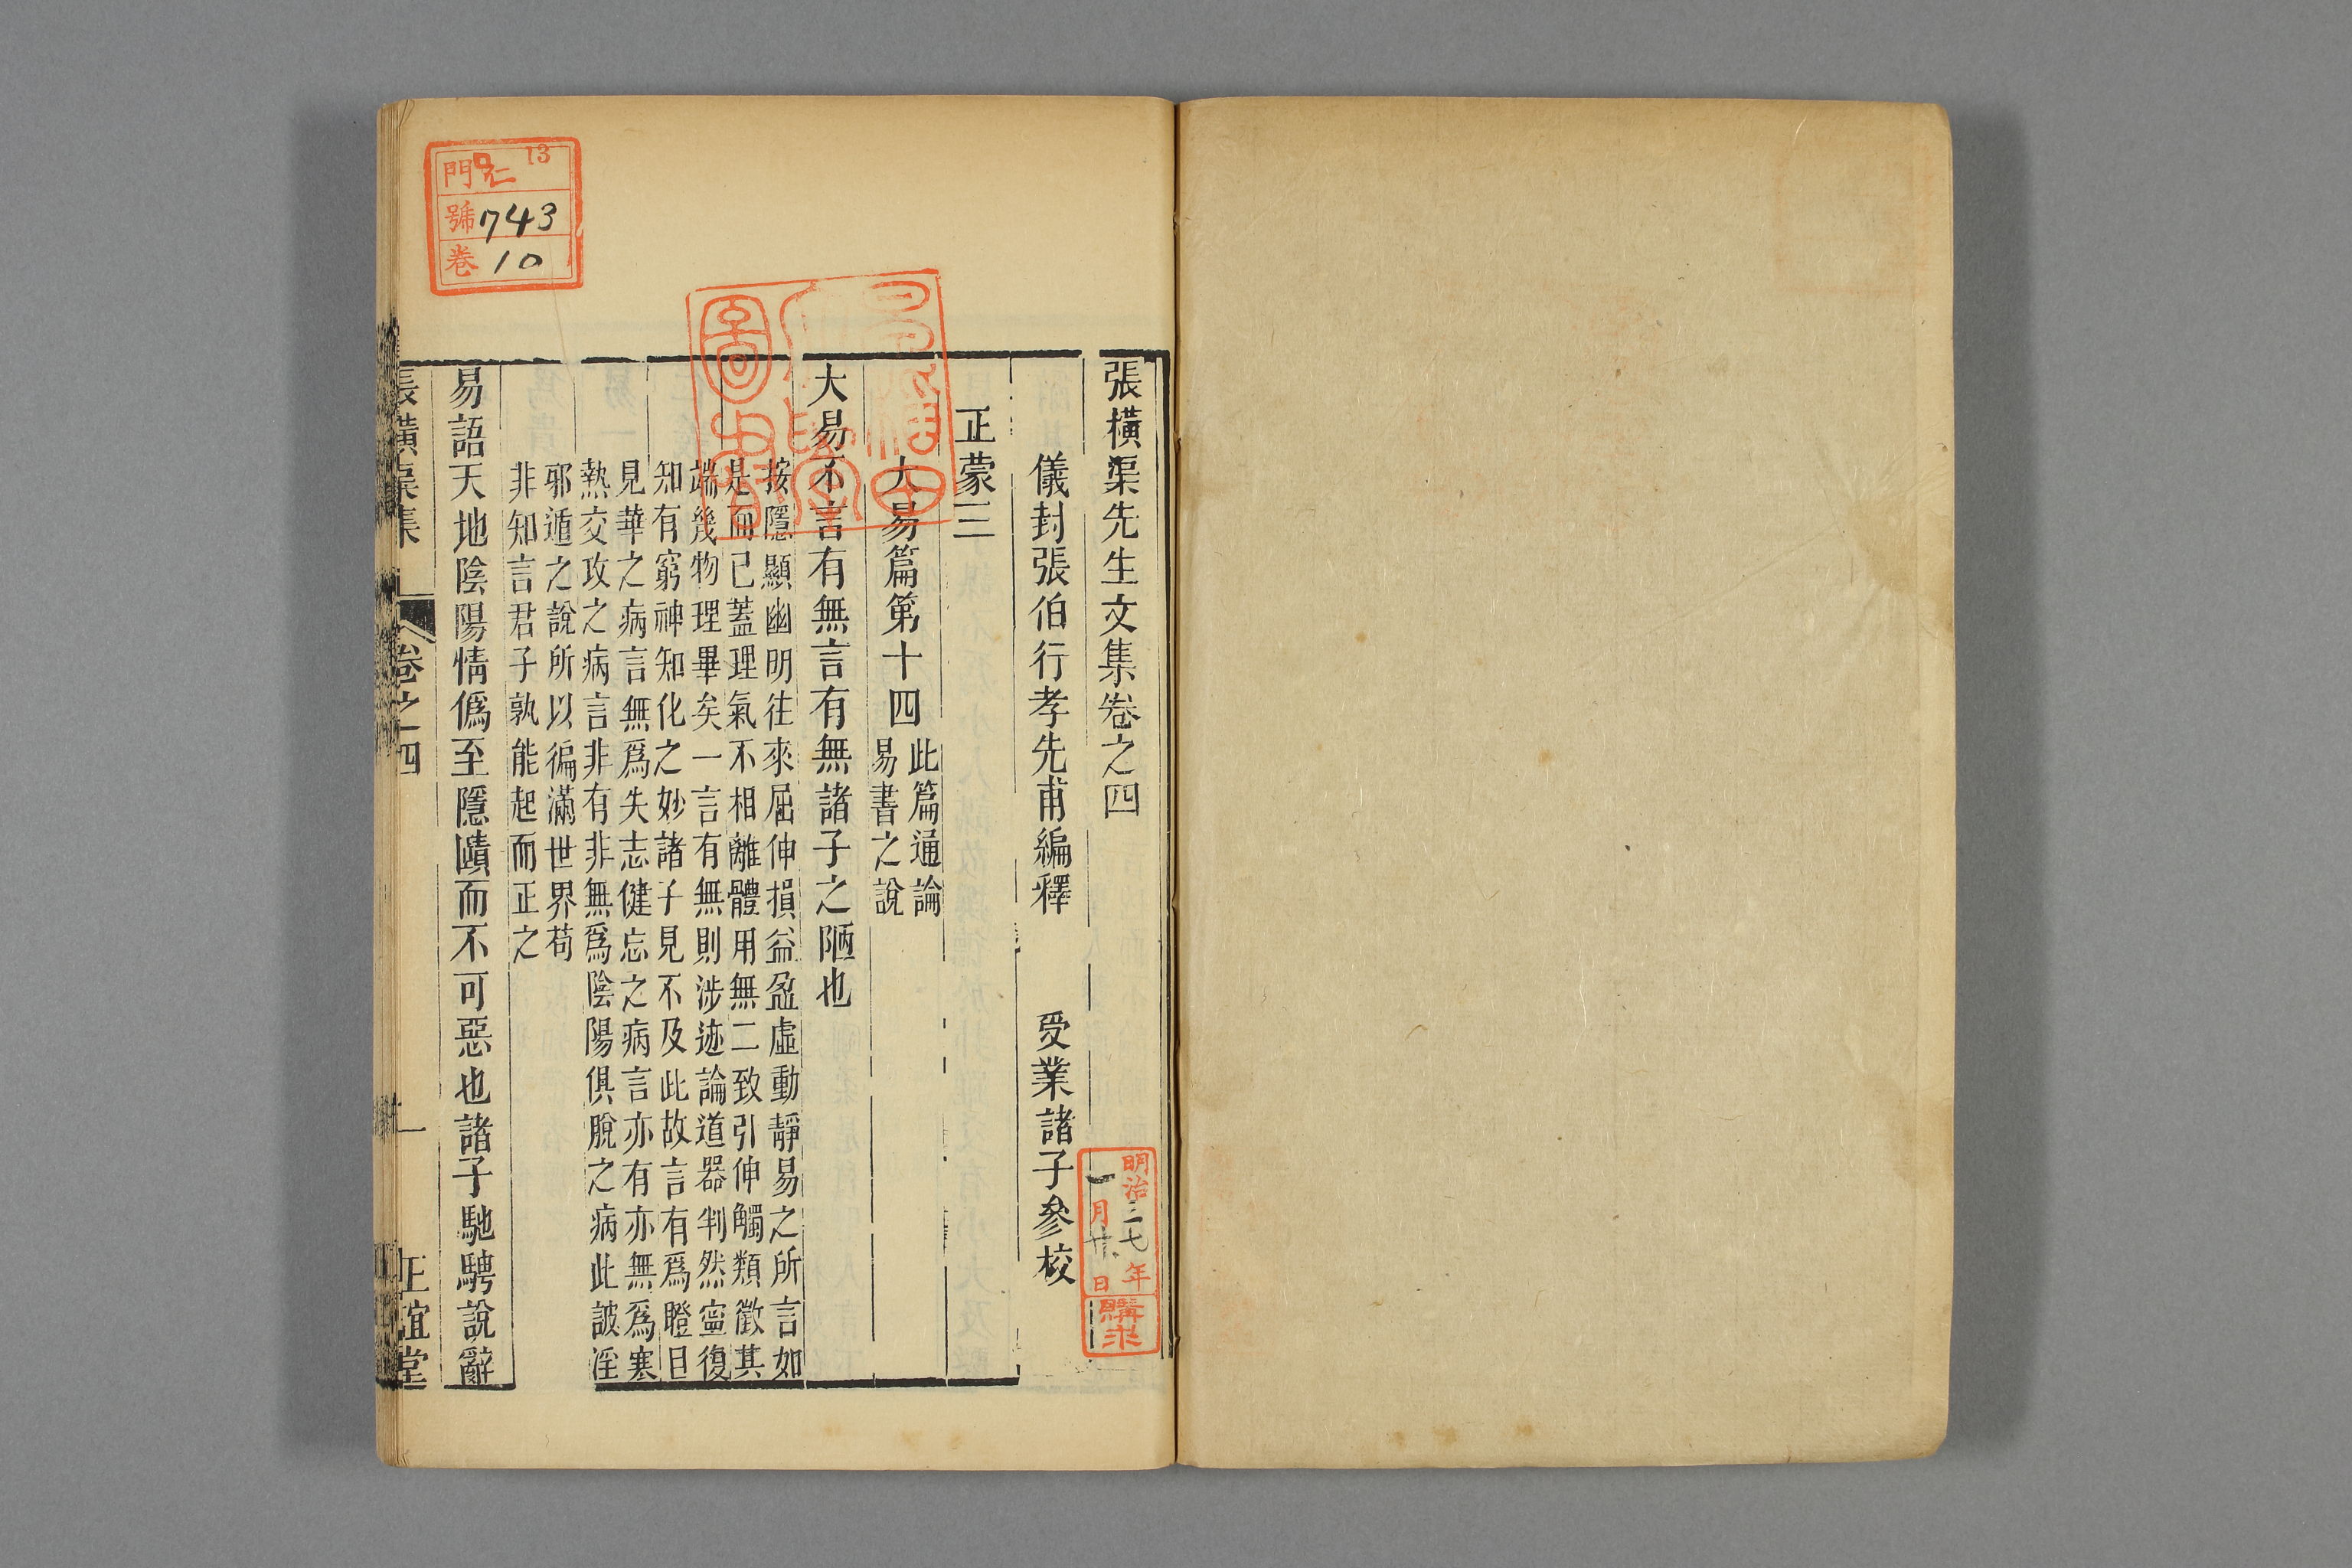 張橫渠先生文集卷之四
儀封張伯行孝先甫編釋 受業諸子參校
正蒙三
大易篇第十四 此篇通論
易書之說
大易不言有無言有無諸子之陋也
按隱顯幽明往來屈伸損益盈虛動靜易之所言如
是而已蓋理氣不相離體用無二致引伸觸類徵其
端幾物理畢矣一言有無則涉迹論道器判然寧復
知有窮神知化之妙諸子見不及此故言有爲瞪目
見華之病言無爲失志健忘之病言亦有亦無爲寒
熱交攻之病言非有非無爲陰陽俱脫之病此詖淫
邪遁之說所以徧滿世界苟
非知言君子孰能起而正之
易語天地陰陽情僞至隱賾而不可惡也諸子馳騁說辭
張橫渠集 卷之四 一 正誼堂
明治三七年
一月廿日
購求
門 13
號 743
卷 10